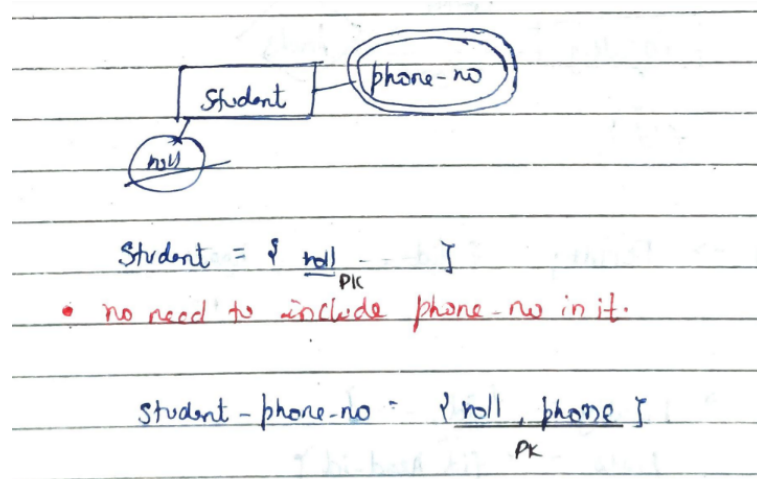 phone-no
Student
roll
Student = { roll }
PK
• no need to include phone-no in it.
Student-phone-no = { roll, phone }
PK